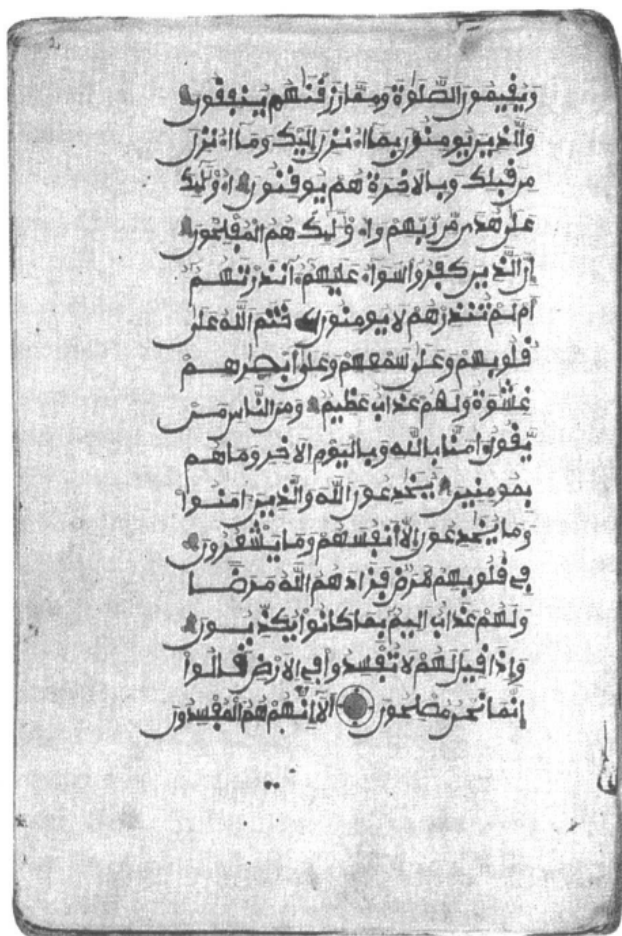 وَيُقِيمُونَ الصَّلَوٰةَ وَمِمَّا رَزَقْنَٰهُمْ يُنفِقُونَ
وَالَّذِينَ يُومِنُونَ بِمَا أُنزِلَ إِلَيْكَ وَمَا أُنزِلَ
مِن قَبْلِكَ وَبِالَاخِرَةِ هُمْ يُوقِنُونَ أُوْلَٰئِكَ
عَلَىٰ هُدىً مِّن رَّبِّهِمْ وَأُوْلَٰئِكَ هُمُ الْمُفْلِحُونَ
إِنَّ الَّذِينَ كَفَرُوا سَوَاءٌ عَلَيْهِمُ ءَانذَرْتَهُمُ
أَمْ لَمْ تُنذِرْهُمْ لَا يُومِنُونَ خَتَمَ اللَّهُ عَلَىٰ
قُلُوبِهِمْ وَعَلَىٰ سَمْعِهِمْ وَعَلَىٰ أَبْصَٰرِهِمْ
غِشَٰوَةٌ وَلَهُمْ عَذَابٌ عَظِيمٌ وَمِنَ النَّاسِ مَنْ
يَّقُولُ ءَامَنَّا بِاللَّهِ وَبِالْيَوْمِ الَاخِرِ وَمَا هُم
بِمُومِنِينَ يُخَٰدِعُونَ اللَّهَ وَالَّذِينَ ءَامَنُوا
وَمَا يُخَٰدِعُونَ إِلَّا أَنفُسَهُمْ وَمَا يَشْعُرُونَ
فِي قُلُوبِهِم مَّرَضٌ فَزَادَهُمُ اللَّهُ مَرَضًا
وَلَهُمْ عَذَابٌ الِيمٌ بِمَا كَانُوا يُكَذِّبُونَ
وَإِذَا قِيلَ لَهُمْ لَا تُفْسِدُوا فِي الَارْضِ قَالُوا
إِنَّمَا نَحْنُ مُصْلِحُونَ أَلَا إِنَّهُمْ هُمُ الْمُفْسِدُونَ